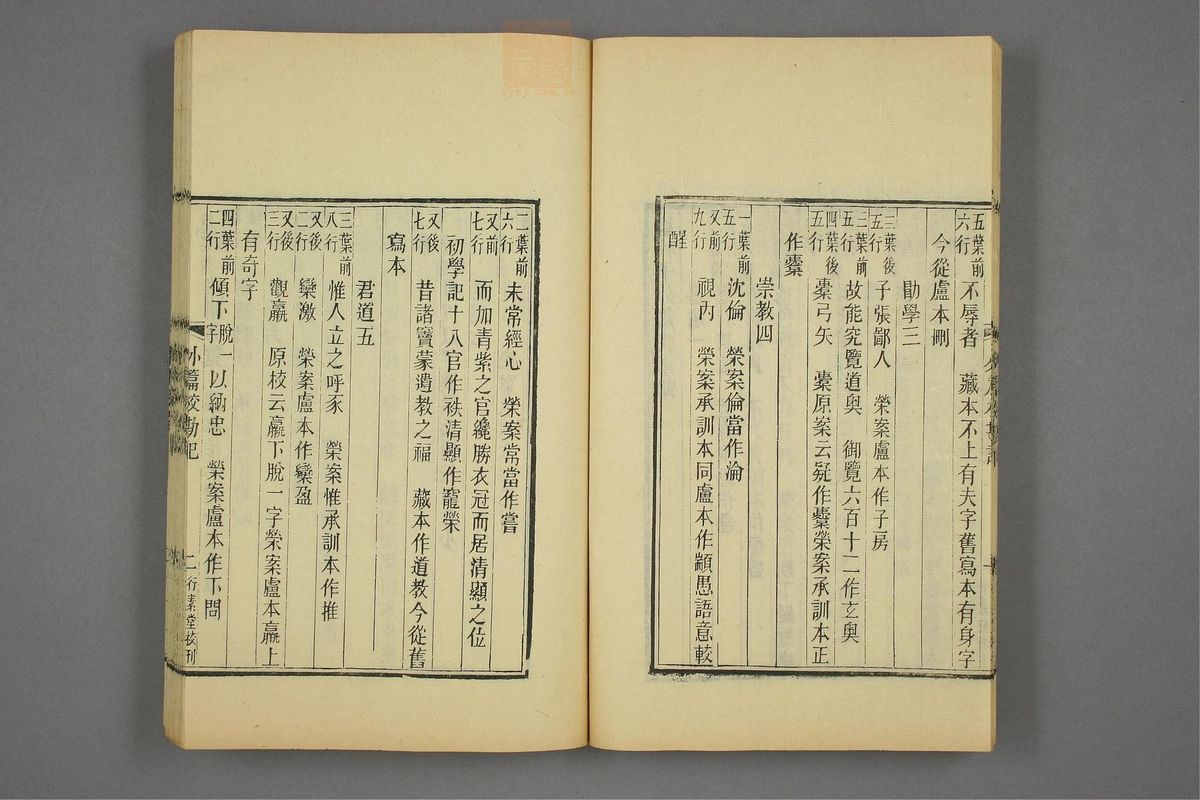 五葉前六行 不辱者 藏本不上有夫字舊寫本有身字
今從盧本刪
勖學三
三葉後五行 子張鄙人 榮案盧本作子房
三葉前五行 故能究覽道奧 御覽六百十二作玄奧
四葉後五行 櫜弓矢 櫜原案云疑作櫜榮案承訓本正
作櫜
崇教四
一葉前五行 沈倫 榮案倫當作淪
又前九行 視內 榮案承訓本同盧本作顓愚語意較
醒
二葉前六行 未常經心 榮案常當作嘗
又前七行 而加青紫之官纔勝衣冠而居清顯之位
初學記十八官作袟清顯作寵榮
又後七行 昔諸竇蒙遺教之福 藏本作道教今從舊
寫本
君道五
三葉前八行 惟人立之呼豕 榮案惟承訓本作推
又後二行 欒激 榮案盧本作欒盈
又後三行 觀羸 原校云羸下脫一字榮案盧本羸上
有奇字
四葉前二行 傾下脫一字以納忠 榮案盧本作下問
外篇校勘記 二 行素堂校刊